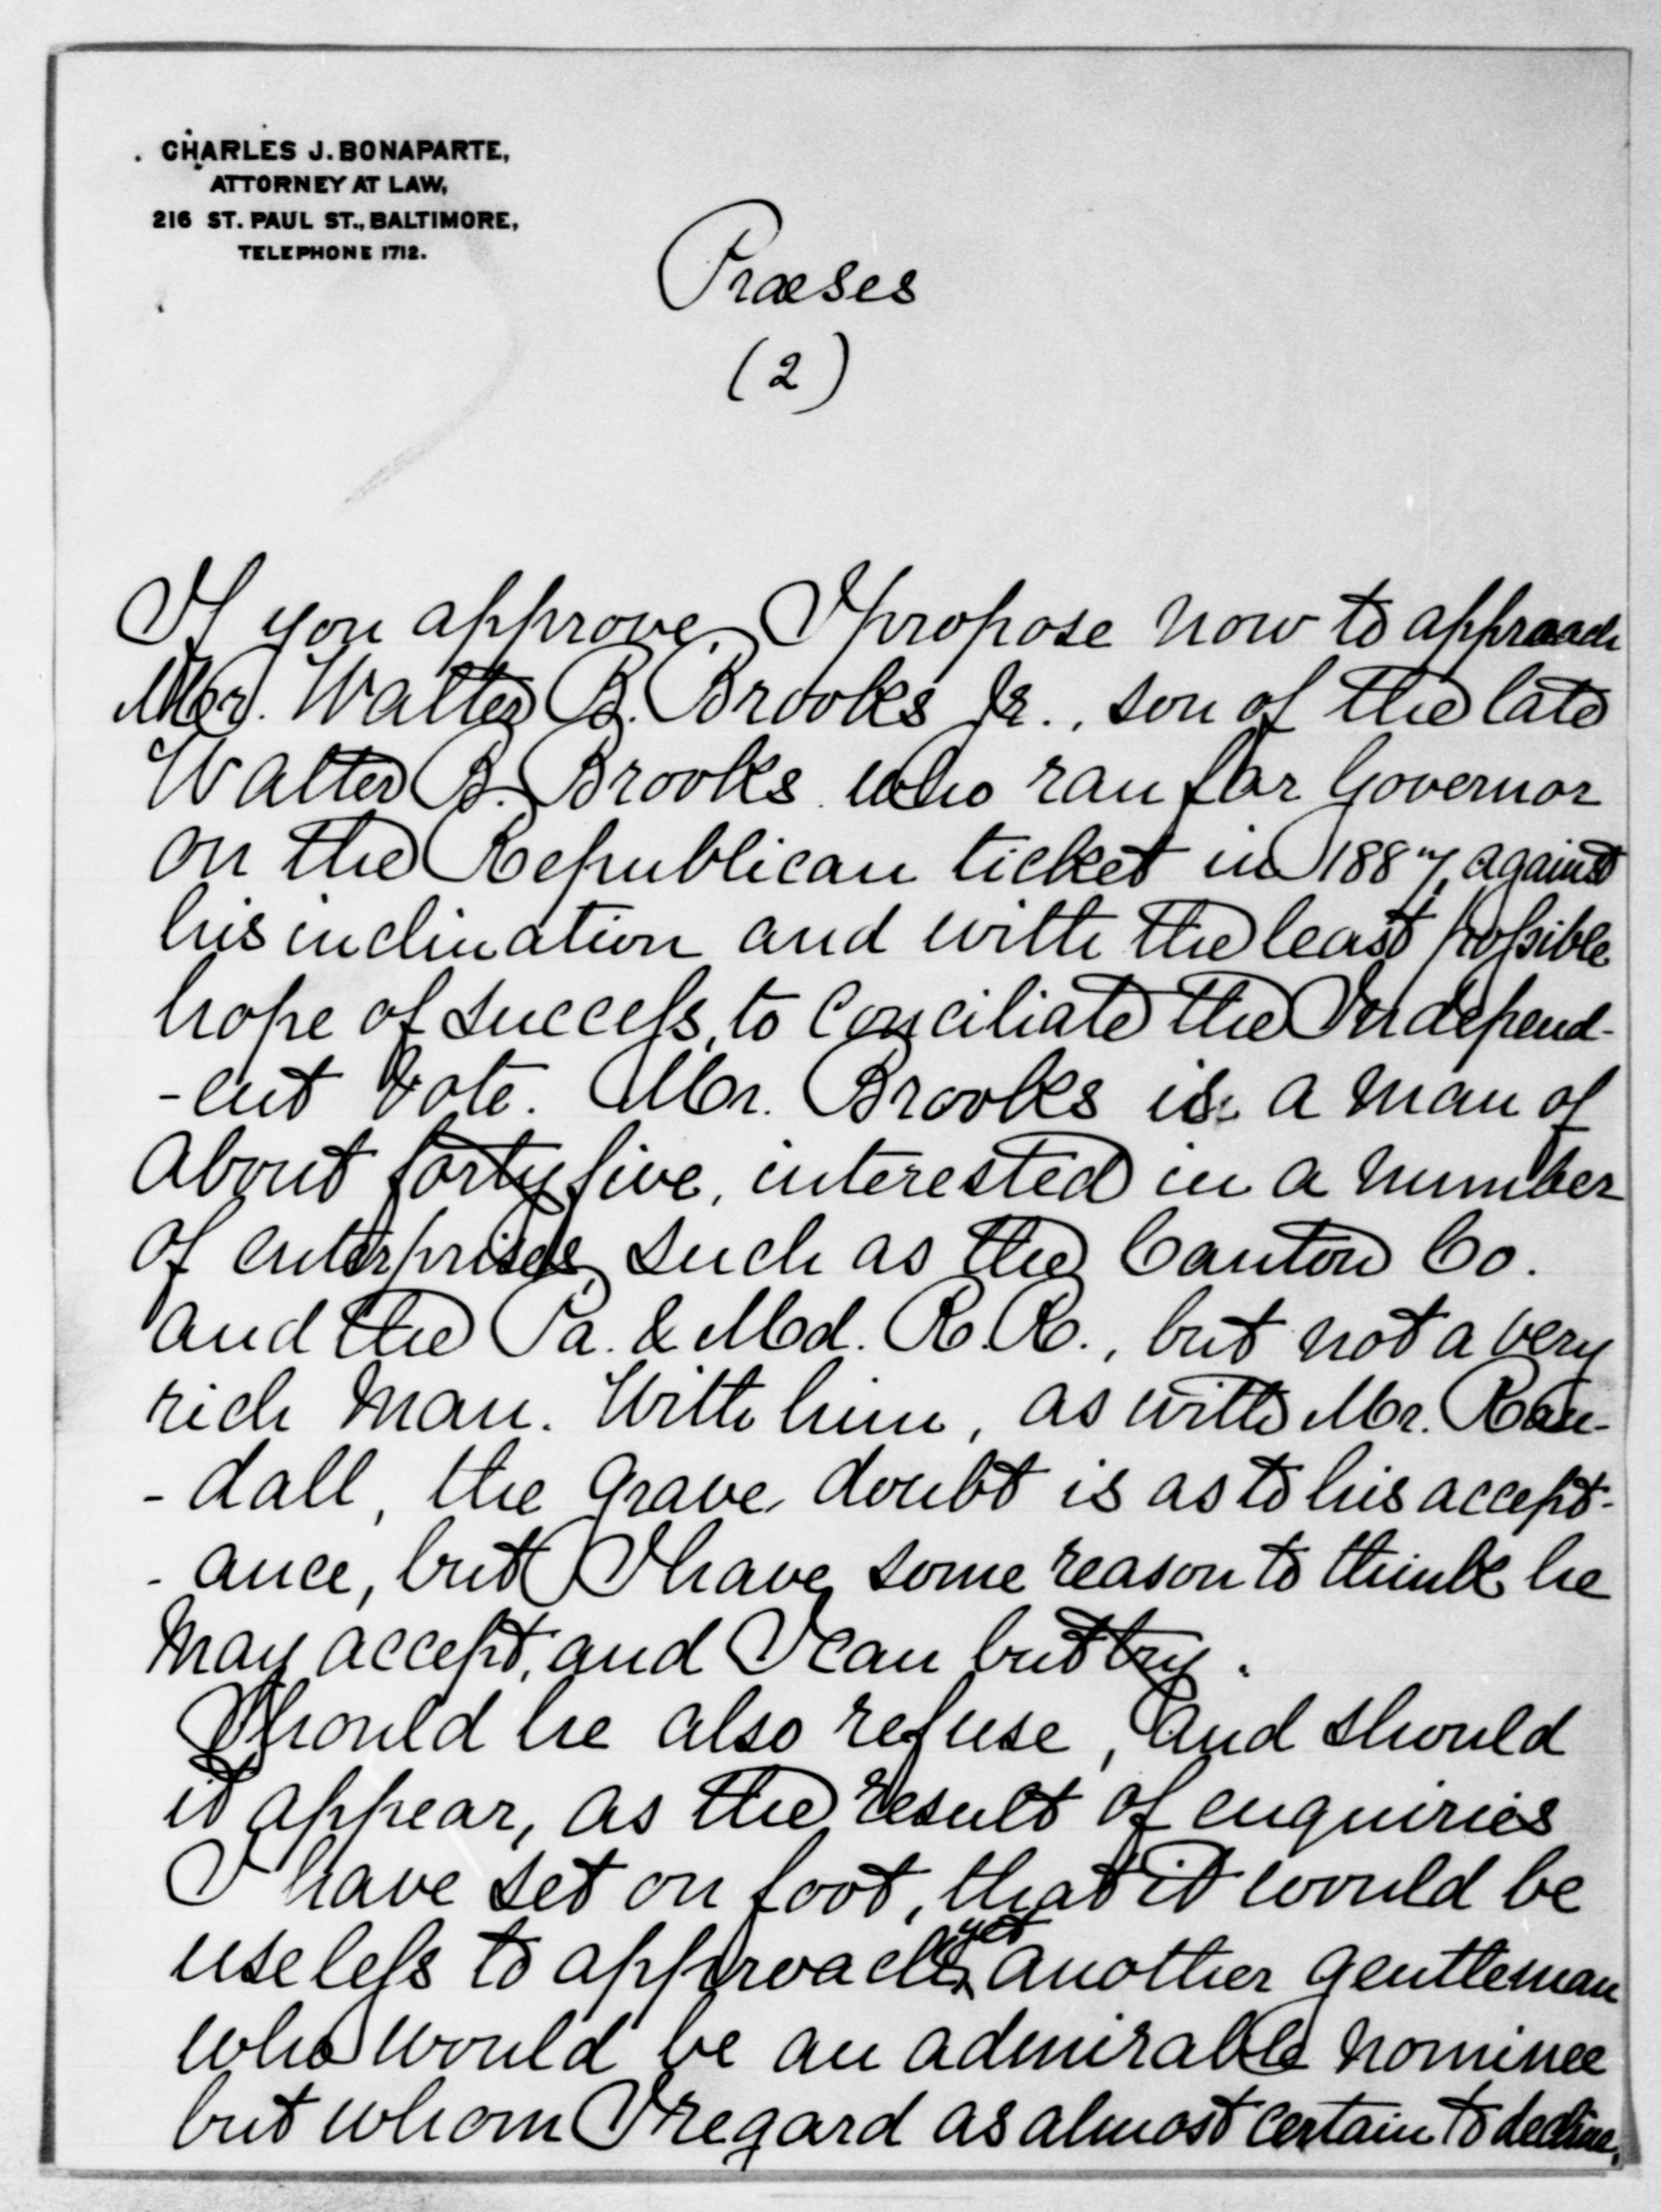 CHARLES J. BONAPARTE,
ATTORNEY AT LAW,
216 ST. PAUL ST., BALTIMORE,
TELEPHONE 1712.
Præses
(2)
If you approve, I propose now to approach
Mr. Walter B. Brooks Jr., son of the late
Walter B. Brooks who ran for Governor
on the Republican ticket in 1887, against
his inclination and with the least possible
hope of success, to conciliate the Independ-
-ent vote. Mr. Brooks is a man of
about forty five, interested in a number
of enterprises, such as the Canton Co.
and the Pa. & Md. R.R., but not a very
rich man. With him, as with Mr. Ran-
-dall, the grave doubt is as to his accept-
-ance, but I have some reason to think he
may accept, and I can but try.
Should he also refuse, and should
it appear, as the result of enquiries
I have set on foot, that it would be
useless to approach yet another gentleman
who would be an admirable nominee
but whom I regard as almost certain to decline,